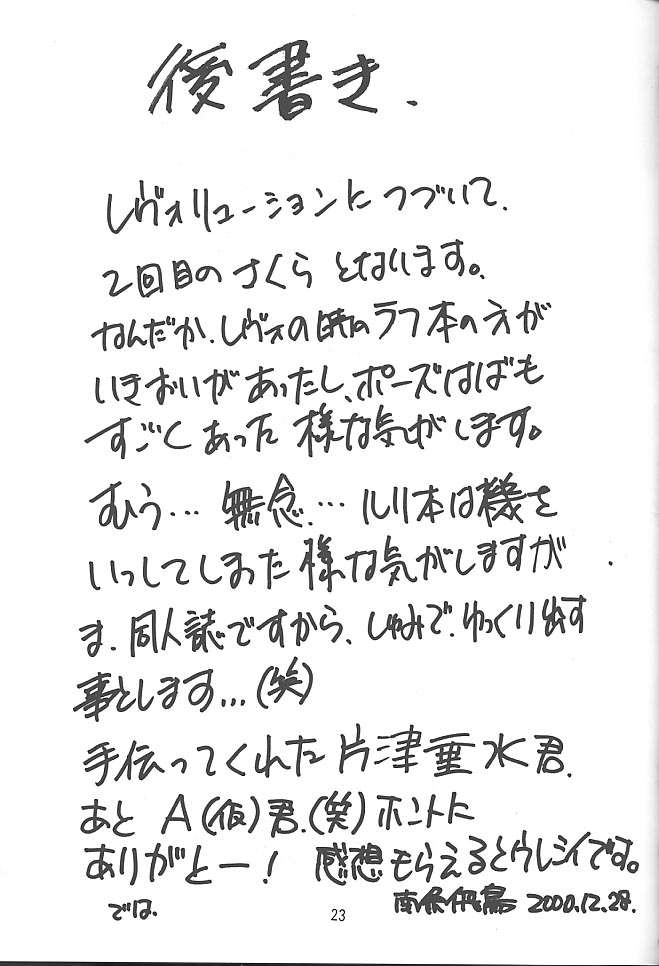 後書き.
レヴォリューションにつづいて.
2回目のさくらとないます。
なんだか.レヴォの時のラフ本の方が
いきおいがあったし、ポーズはばも
すごくあった様な気がします。
むう… 無念.… ルリ本は機を
いっしてしまった様な気がしますが
ま.同人誌ですから、しゅみで.ゆっくり出す
事とします…(笑)
手伝ってくれた片津垂水君.
あと A(仮)君.(笑)ホントに
ありがとー! 感想もらえるとウレシイです。
では. 南条飛鳥 2000.12.28.
23